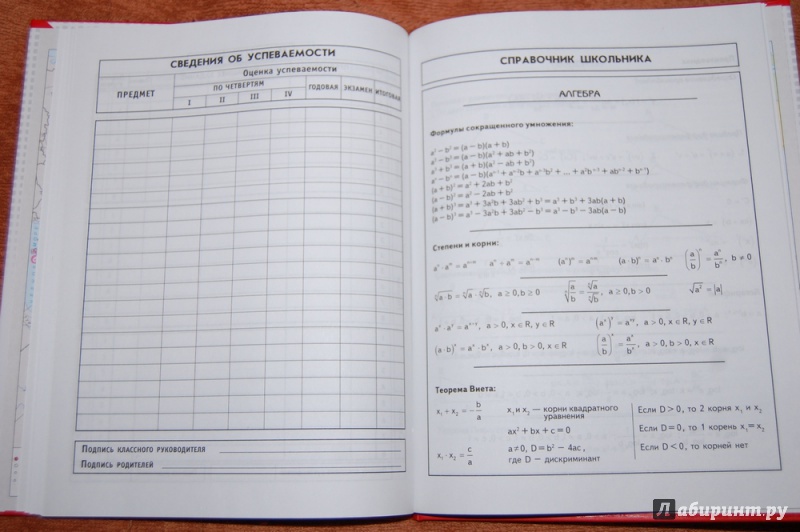 СВЕДЕНИЯ ОБ УСПЕВАЕМОСТИ
ПРЕДМЕТ
Оценка успеваемости
ПО ЧЕТВЕРТЯМ
ГОДОВАЯ
ЭКЗАМЕН
ИТОГОВАЯ
I II III IV
Подпись классного руководителя
Подпись родителей
СПРАВОЧНИК ШКОЛЬНИКА
АЛГЕБРА
Формулы сокращенного умножения:
a² – b² = (a – b)(a + b)
a³ – b³ = (a – b)(a² + ab + b²)
a³ + b³ = (a + b)(a² – ab + b²)
aⁿ – bⁿ = (a – b)(aⁿ⁻¹ + aⁿ⁻²b + aⁿ⁻³b² + ... + a²bⁿ⁻³ + abⁿ⁻² + bⁿ⁻¹)
(a + b)² = a² + 2ab + b²
(a – b)² = a² – 2ab + b²
(a + b)³ = a³ + 3a²b + 3ab² + b³ = a³ + b³ + 3ab(a + b)
(a – b)³ = a³ – 3a²b + 3ab² – b³ = a³ – b³ – 3ab(a – b)
Степени и корни:
aⁿ · aᵐ = aⁿ⁺ᵐ aⁿ ÷ aᵐ = aⁿ⁻ᵐ (aⁿ)ᵐ = aⁿ·ᵐ (a · b)ⁿ = aⁿ · bⁿ (a/b)ⁿ = aⁿ/bⁿ, b ≠ 0
ⁿ√(a · b) = ⁿ√a · ⁿ√b, a ≥ 0, b ≥ 0 ⁿ√(a/b) = ⁿ√a/ⁿ√b, a ≥ 0, b > 0 √a² = |a|
aˣ · aʸ = aˣ⁺ʸ, a > 0, x ∈ R, y ∈ R (aˣ)ʸ = aˣʸ, a > 0, x ∈ R, y ∈ R
(a · b)ˣ = aˣ · bˣ, a > 0, b > 0, x ∈ R (a/b)ˣ = aˣ/bˣ, a > 0, b > 0, x ∈ R
Теорема Виета:
x₁ + x₂ = – b/a
x₁ · x₂ = c/a
x₁ и x₂ — корни квадратного
уравнения
ax² + bx + c = 0
a ≠ 0, D = b² – 4ac,
где D – дискриминант
Если D > 0, то 2 корня x₁ и x₂
Если D = 0, то 1 корень x₁ = x₂
Если D < 0, то корней нет
Лабиринт.ру